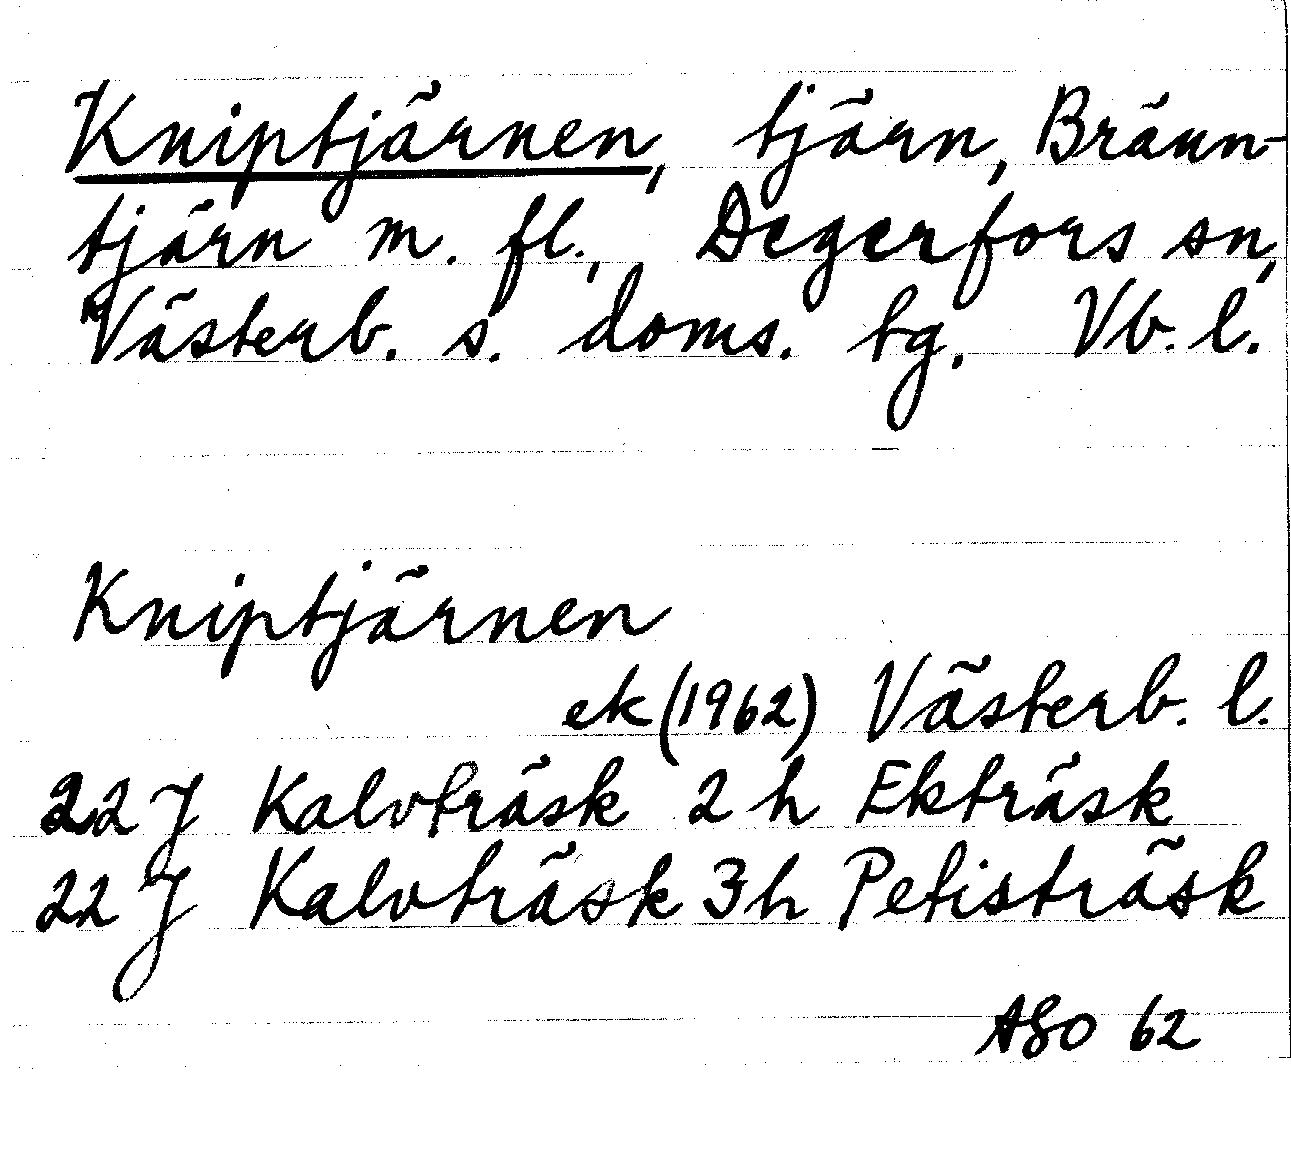 Kniptjärnen, tjärn, Bräun-
tjärn m. fl., Degerfors sn,
Västerb. s. doms. tg. Vb. l.
Kniptjärnen
ek (1962) Västerb. l.
22 J Kalvträsk 2 h Ekträsk
22 J Kalvträsk 3 h Petisträsk
ASO 62